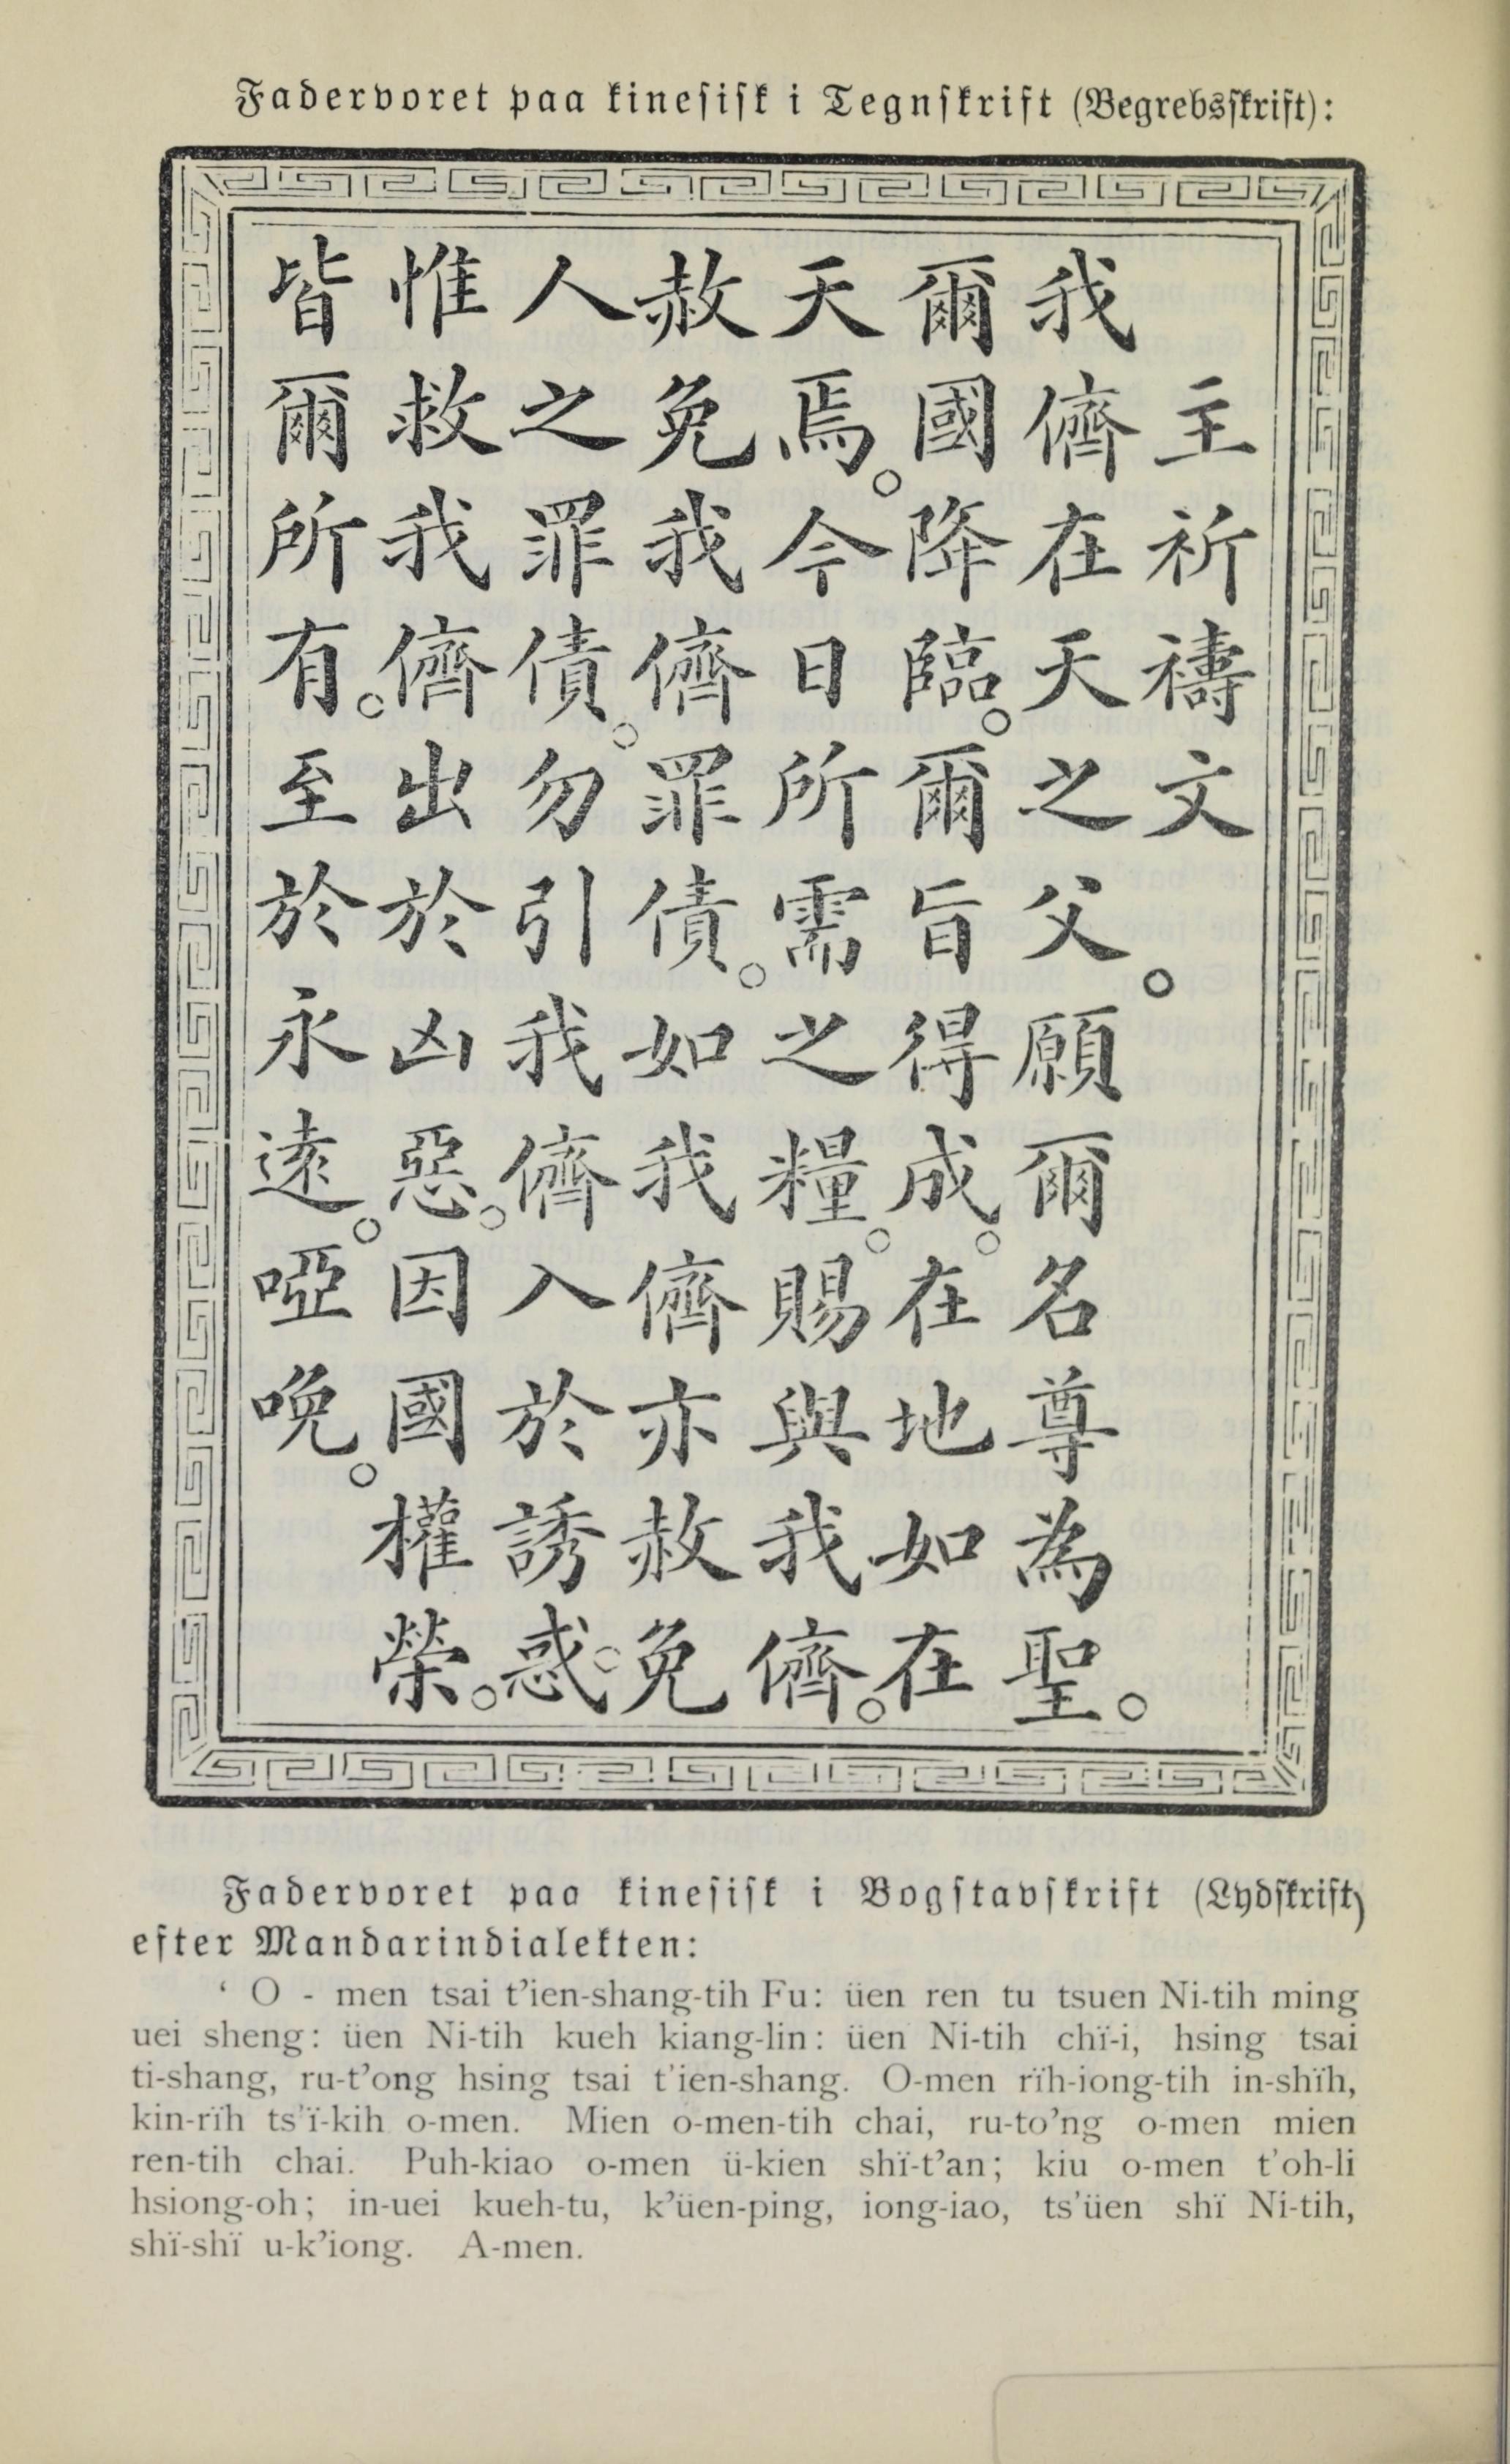 Fadervoret paa kinesisk i Tegnskrift (Begrebsskrift):
主祈禱文
我儕在天之父。願爾名尊為聖。
爾國降臨。爾旨得成。在地如在
天焉。今日所需之糧。賜與我儕。
赦免我儕罪債。如我儕亦赦免
人之罪債。勿引我儕入於誘惑。
惟救我儕出於凶惡。因國權榮。
皆爾所有。至於永遠。啞唍。
Fadervoret paa kinesisk i Bogstavskrift (Lydskrift)
efter Mandarindialekten:
‘ O - men tsai t’ien-shang-tih Fu: üen ren tu tsuen Ni-tih ming
uei sheng: üen Ni-tih kueh kiang-lin: üen Ni-tih chï-i, hsing tsai
ti-shang, ru-t’ong hsing tsai t’ien-shang. O-men rïh-iong-tih in-shïh,
kin-rïh ts’ï-kih o-men. Mien o-men-tih chai, ru-to’ng o-men mien
ren-tih chai. Puh-kiao o-men ü-kien shï-t’an; kiu o-men t’oh-li
hsiong-oh; in-uei kueh-tu, k’üen-ping, iong-iao, ts’üen shï Ni-tih,
shï-shï u-k’iong. A-men.